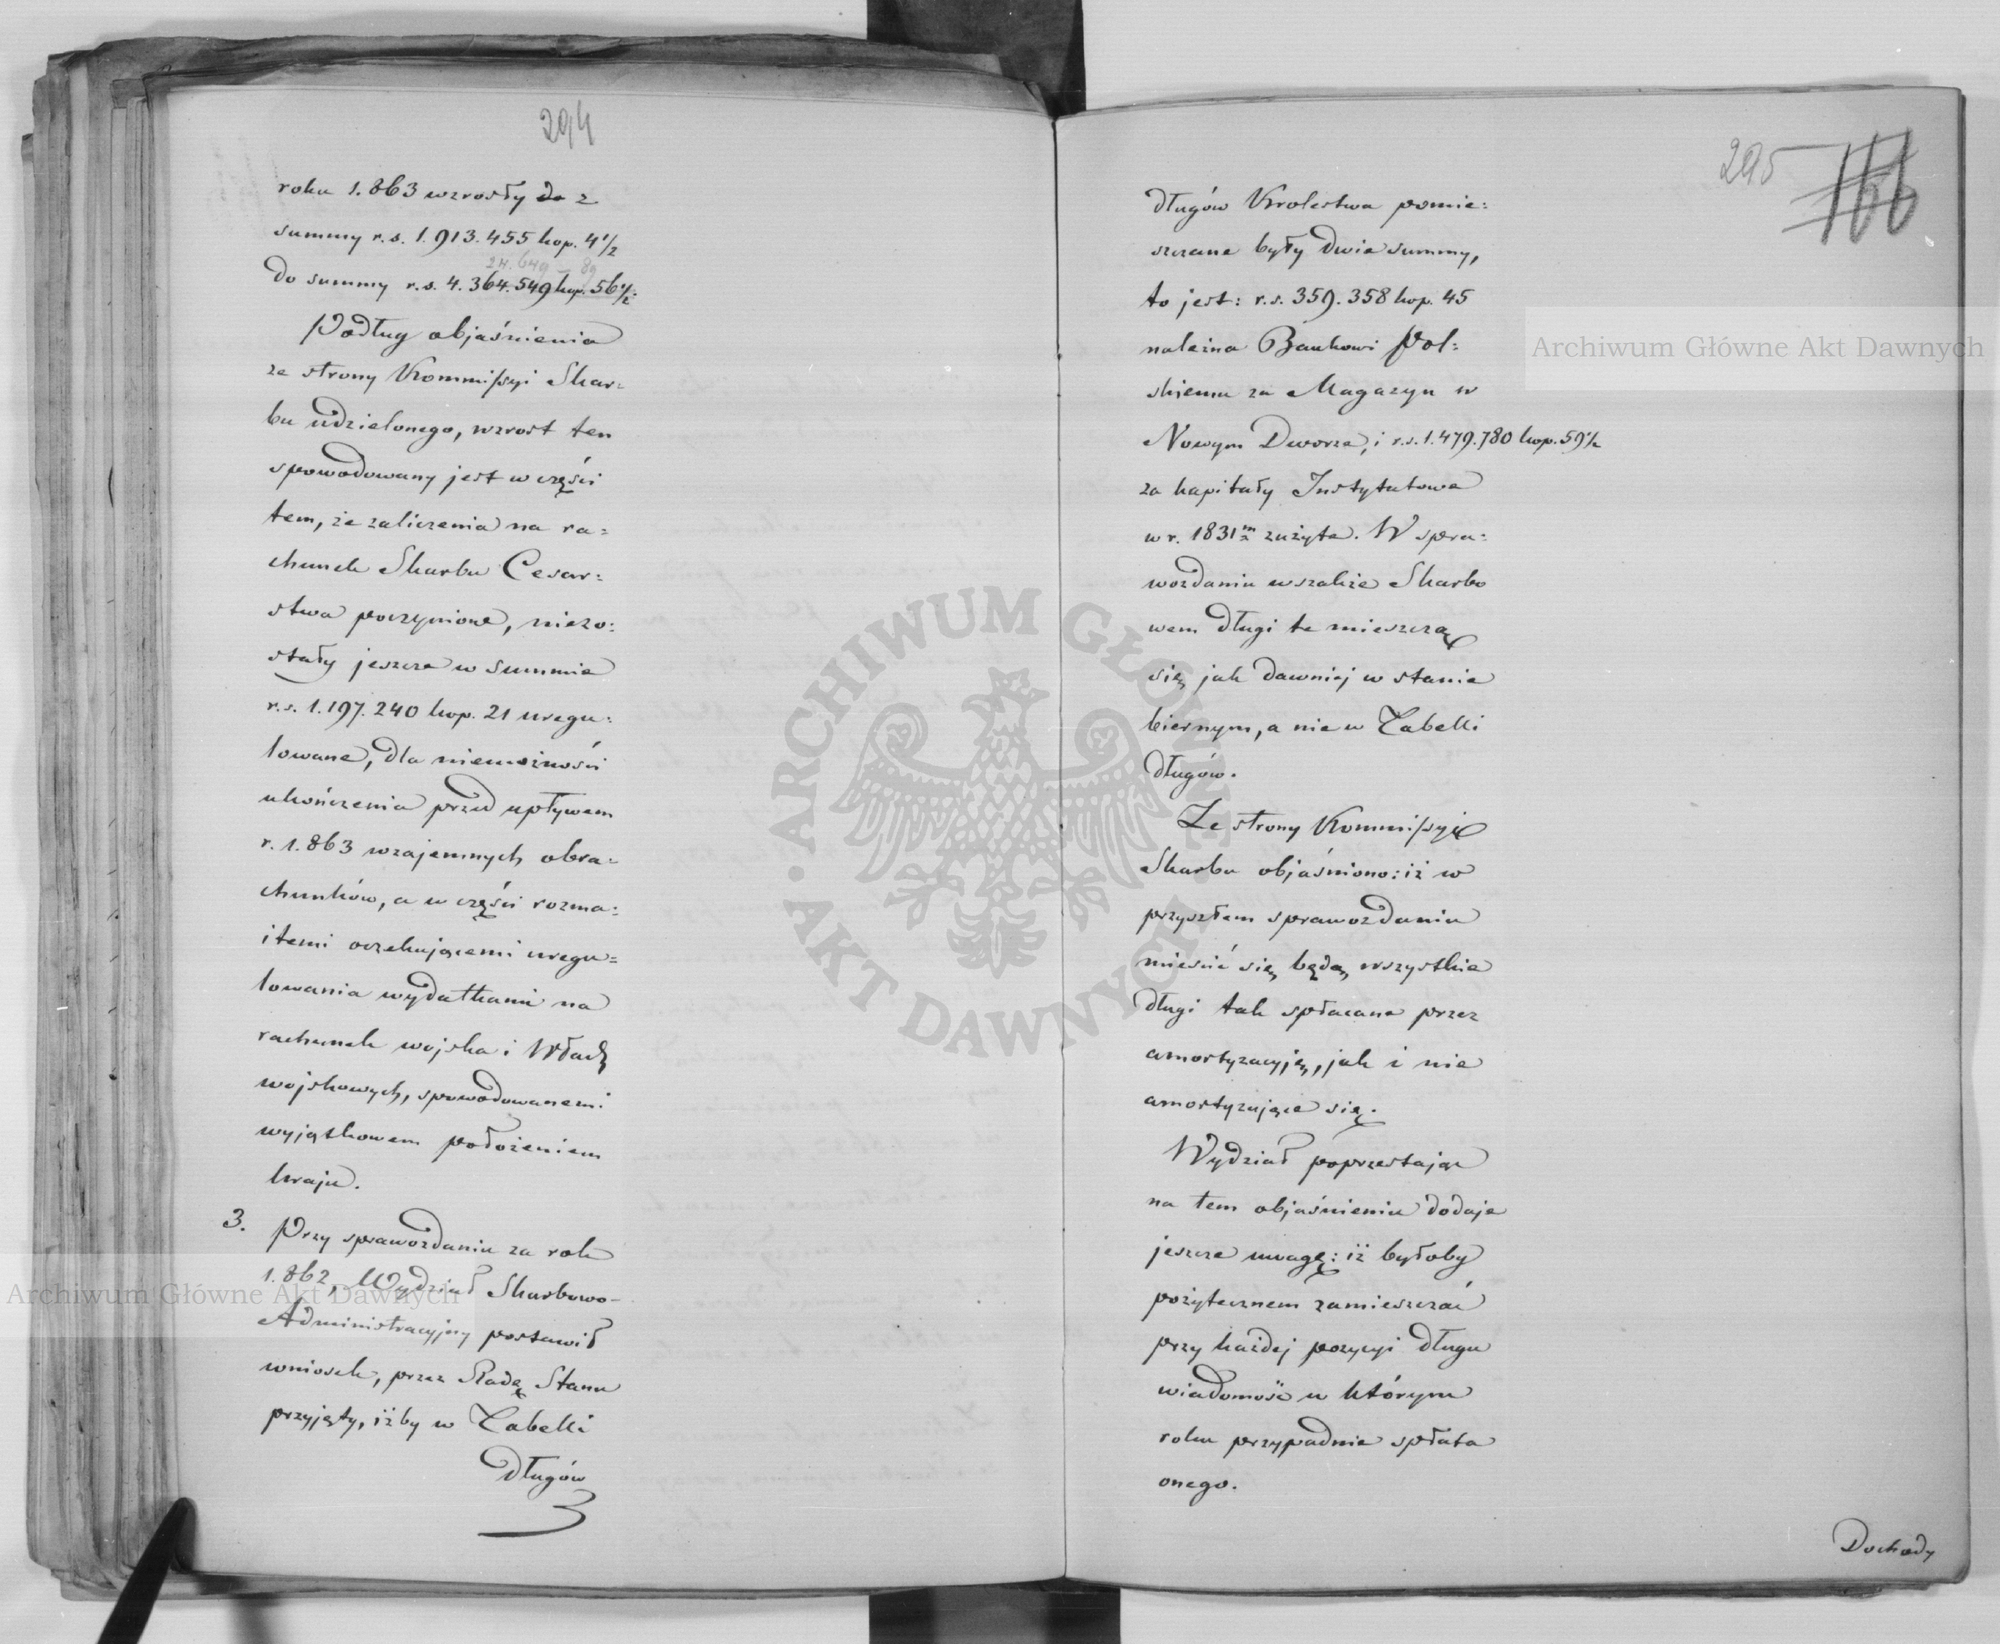 294
roku 1.863 wzrosły do z
summy r.s. 1.913.455 kop. 4 1/2
do summy r.s. 4.364.549 kop. 56 1/2.
Podług objaśnienia
ze strony Kommissyi Skar=
bu udzielonego, wzrost ten
spowodowany jest w części
tem, że zaliczenia na ra=
chunek Skarbu Cesar=
stwa poczynione, niezo=
stały jeszcze w summie
r.s. 1.197.240 kop. 21 uregu=
lowane, dla niemożności
ukończenia przed upływem
r. 1.863 wzajemnych obra=
chunków, a w części rozma=
itemi oczekującemi uregu=
lowania wydatkami na
rachunek wojska i Władz
wojskowych, spowodowanemi
wyjątkowem położeniem
kraju.
3. Przy sprawozdaniu za rok
1.862, Wydział Skarbowo-
Administracyjny postawił
wniosek, przez Radę Stanu
przyjęty, iżby w Tabelli
długów
295 166
długów Krolestwa pomie=
szczane były dwie summy,
to jest: r.s. 359.358 kop. 45
należna Bankowi Pol=
skiemu za Magazyn w
Nowym Dworze, i r.s. 1.479.780 kop. 59 1/2
za kapitały Instytutowe
w r. 1831m zużyte. W spra=
wozdaniu wszakże Skarbo
wem długi te mieszczą
się jak dawniej w stanie
biernym, a nie w Tabelli
długów.
Ze strony Kommissyi
Skarbu objaśniono: iż w
przyszłem sprawozdaniu
mieścić się będą wszystkie
długi tak spłacane przez
amortyzacyję, jak i nie
amortyzujące się.
Wydział poprzestając
na tem objaśnieniu dodaje
jeszcze uwagę: iż byłoby
pożytecznem zamieszczać
przy każdej pozycyi długu
wiadomość w którym
roku przypadnie spłata
onego.
Dochody
Archiwum Główne Akt Dawnych
Archiwum Główne Akt Dawnych
ARCHIWUM GŁÓWNE AKT DAWNYCH